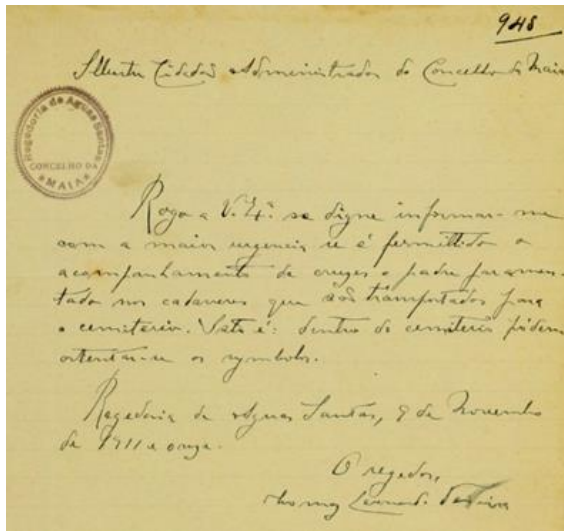 948
Illustre Cidadão Administrador do Concelho da Maia
Regedoria de Aguas Santas
CONCELHO DA
MAIA
Rogo a V. Exª. se digne informar-me
com a maior urgencia se é permittido o
acompanhamento de cruzes e padre paramen-
tado nos cadaveres que são transportados para
o cemiterio. Isto é: dentro do cemiterio pódem
ostentar-se os symbolos.
Regedoria de Aguas Santas, 9 de Novembro
de 1911 e onze.
O regedor,